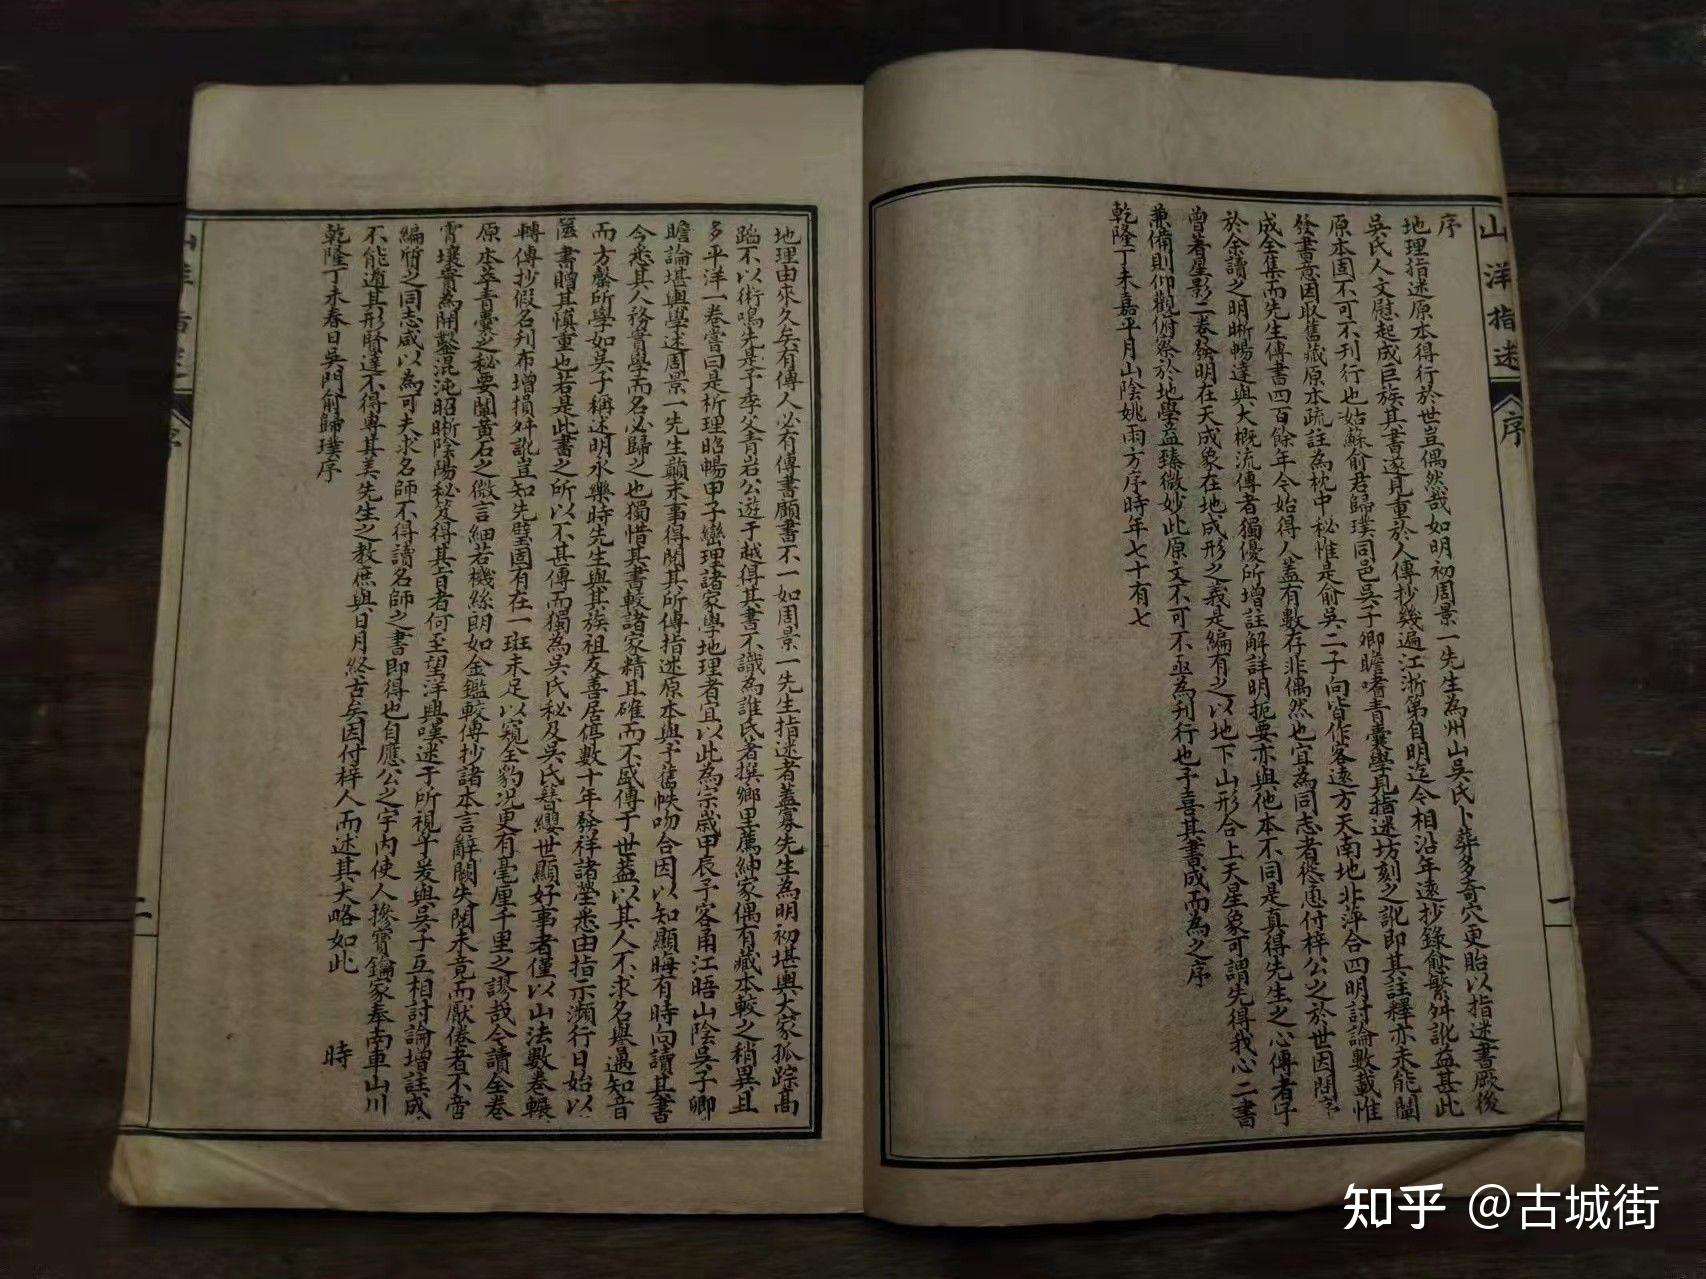 山洋指迷
序
一
序
地理指迷原本得行於世豈偶然哉如明初周景一先生為州山吳氏卜葬多奇穴更貽以指迷書厥後
吳氏人文慰起成巨族其書遂見重於人傳抄幾遍江浙第自明迄今相沿年遠抄錄愈繁舛訛益甚此
原本固不可不刊行也姑蘇俞君歸璞同邑吳子卿瞻嗜青囊學見指迷坊刻之訛即其註釋亦未能闡
發書意因取舊藏原本疏註為枕中秘惟是俞吳二子向皆作客遠方天南地北萍合四明討論數載惟
成全集而先生傳書四百餘年今始得人蓋有數存非偶然也宜為同志者慫恿付梓公之於世因閱序
於余讀之明晰暢達與大概流傳者獨優所增註解詳明扼要亦與他本不同是真得先生之心傳者予
曾著星影二卷發明在天成象在地成形之義是編有之以地下山形合上天星象可謂先得我心二書
兼備則仰觀俯察於地學益臻微妙此原文不可不亟為刊行也予喜其書成而為之序
乾隆丁未嘉平月山陰姚雨方序時年七十有七
地理由來久矣有傳人必有傳書願書不一如周景一先生指迷者蓋寡先生為明初堪輿大家孤踪高
蹈不以術鳴先是予季父青岩公遊于越得其書不識為誰氏著撰鄉里薦紳家偶有藏本較之稍異且
多平洋一卷嘗曰是析理昭暢甲子巒理諸家學地理者宜以此為宗歲甲辰予客甬江晤山陰吳子卿
瞻論堪輿學述周景一先生巔末事得閱其所傳指迷原本與予舊帙吻合因以知顯晦有時向讀其書
今悉其人務實學而名必歸之也獨惜其書較諸家精且確而不盛傳于世蓋以其人不求名與遇知音
而方罄所學如吳子稱述明永樂時先生與其族祖友善居停數十年發祥諸塋悉由指示瀕行日始以
篋書贈其慎重也若是此書之所以不甚傳而獨為吳氏秘及吳氏簪纓世顯好事者僅以山法數卷輾
轉傳抄假名刊布增損舛訛豈知先璧固有在一班未足以窺全豹况更有毫厘千里之謬哉今讀全卷
原本萃青囊之秘要闡黃石之微言細若機絲朗如金鑑較傳抄諸本言辭闕失閱未竟而厭倦者不啻
霄壤實為開鑿混沌昭晰陰陽秘笈得其旨者何至望洋興嘆迷于所視乎爰與吳子互相討論增註成
編質之同志咸以為可夫求名師不得讀名師之書即得也自應公之宇內使人摻寶鑰家奉南車山川
不能遁其形賢達不得專其美先生之教庶與日月終古矣因付梓人而述其大略如此 時
乾隆丁未春日吳門俞歸璞序
序
二
知乎 @古城街